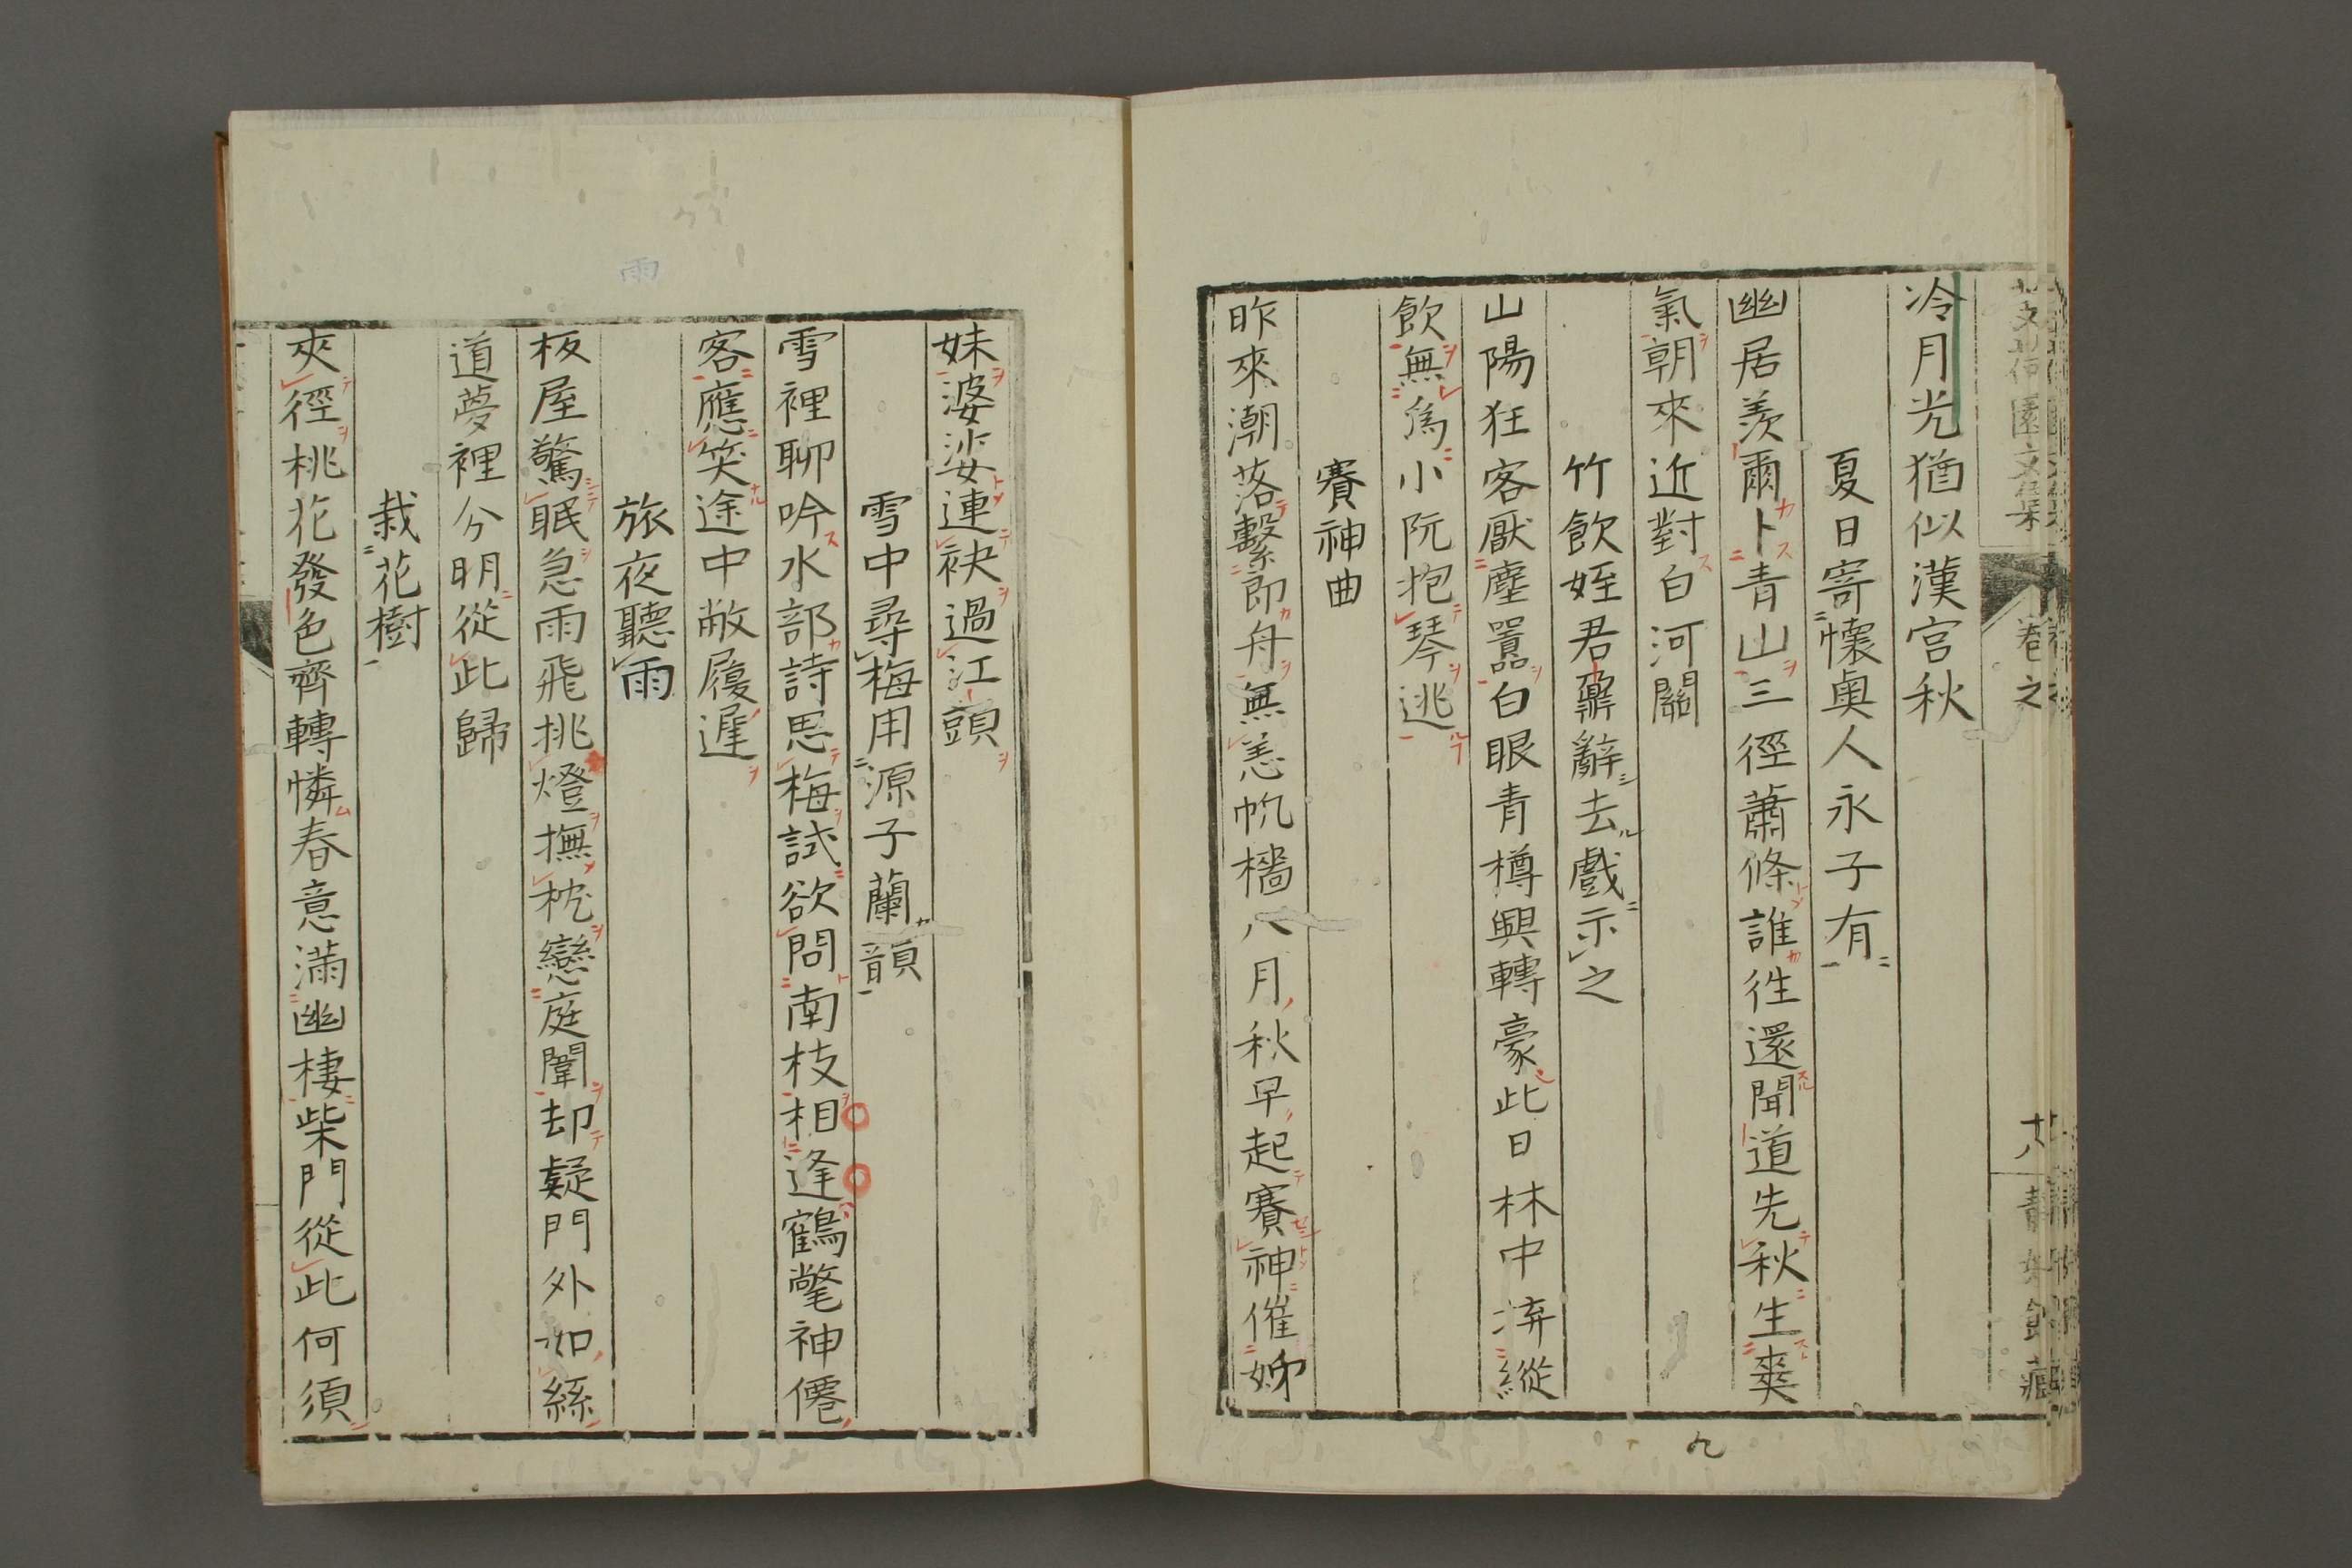 冷月光猶似漢宮秋
夏日寄懷奥人永子有
幽居羨爾卜青山三徑蕭條誰徃還聞道先秋生爽
氣朝來近對白河關
竹飲姪君鼐辭去戲示之
山陽狂客厭塵囂白眼青樽興轉豪此日林中渀縱
飲無爲小阮抱琴逃
賽神曲
昨來潮落繫郎舟無恙帆檣八月秋早起賽神催姊
九
妹婆娑連袂過江頭
雪中尋梅用源子蘭韻
雪裡聊吟水部詩思梅試欲問南枝相逢鶴氅神僊
客應笑途中敝履遲
旅夜聽雨
板屋驚眠急雨飛挑燈撫枕戀庭闈却疑門外如絲
道夢裡分明從此歸
栽花樹
夾徑桃花發色齊轉憐春意滿幽棲柴門從此何須
雨